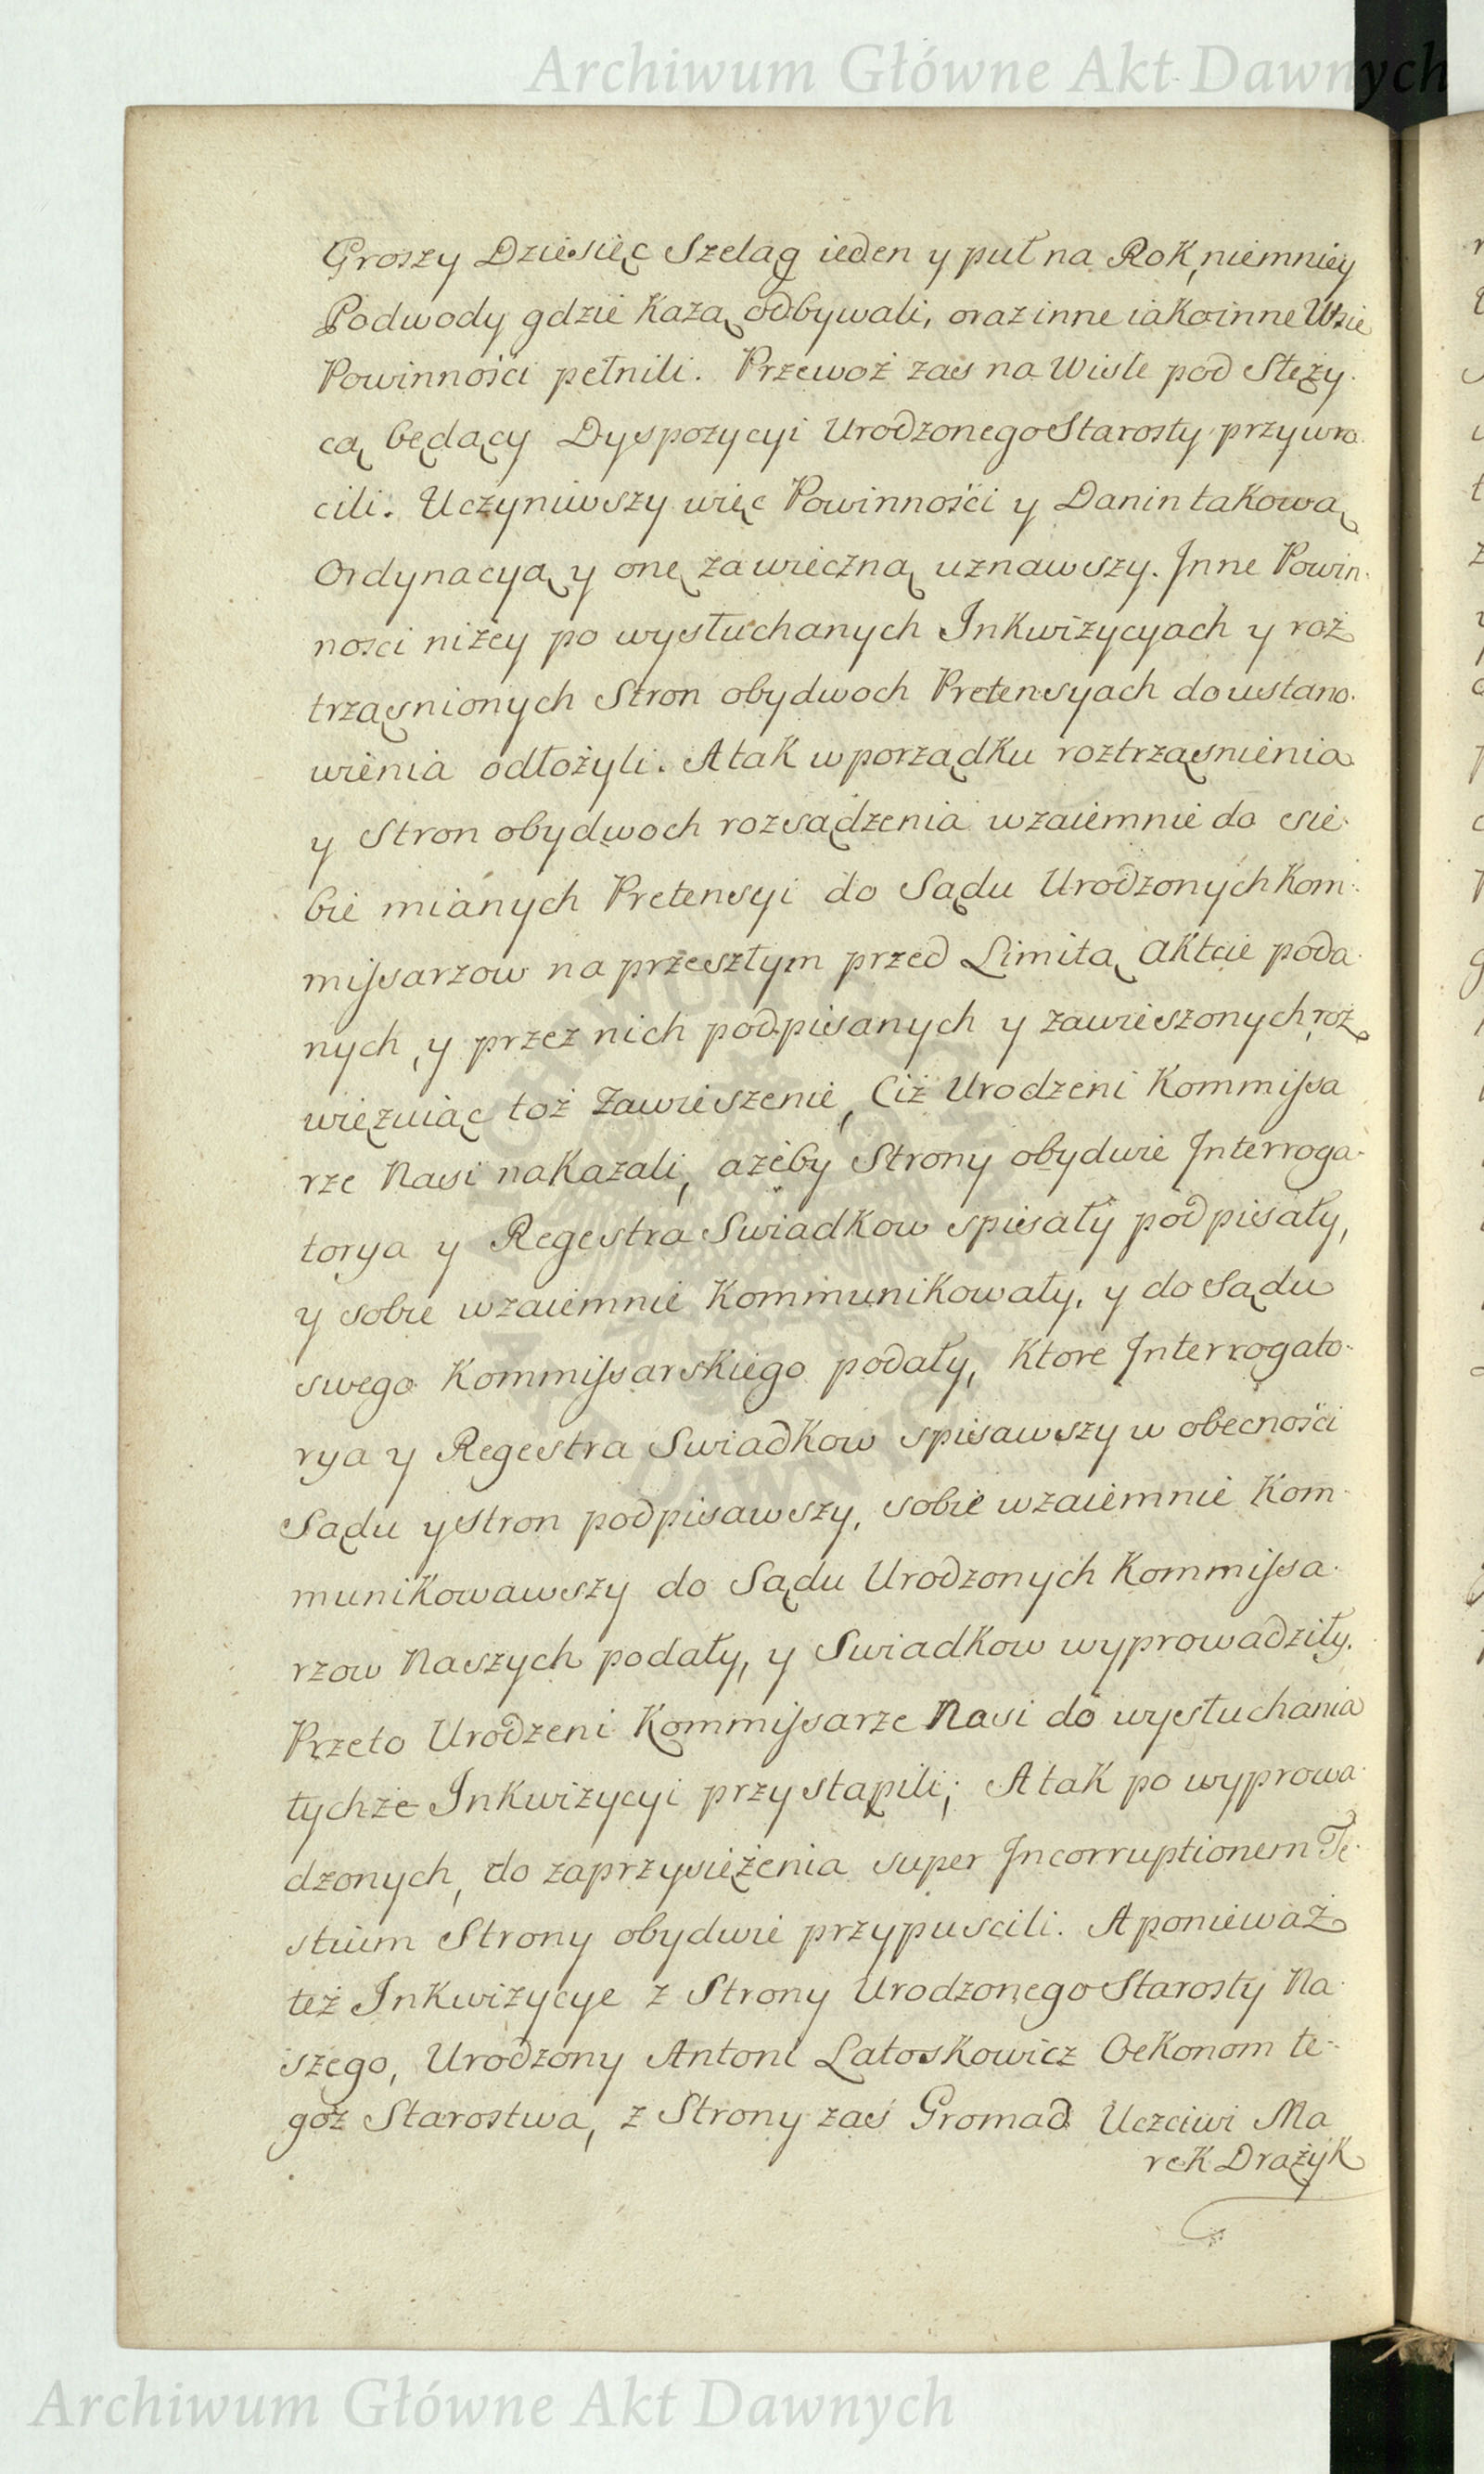 Archiwum Główne Akt Dawnych
Groszy Dziesięc Szeląg ieden y puł na Rok, niemniey
Podwody gdzie Każą odbywali, oraz inne iako inne Wsie
Powinności pełnili. Przewoż zaś na Wiśle pod Stęży-
cą będący Dyspozycyi Urodzonego Starosty przywro-
cili. Uczyniwszy więc Powinności y Danin takową
Ordynacyą y onę za wieczną uznawszy. Inne Powin-
nosci niżey po wysłuchanych Inkwizycyach y roż
trząsnionych Stron obydwoch Pretensyach do ustano-
wienia odłożyli. A tak w porządku roztrząsnienia
y Stron obydwoch rozsądzenia wzaiemnie do sie-
bie mianych Pretensyi do Sądu Urodzonych Kom-
missarzow na przeszłym przed Limitą Aktcie poda-
nych, y przez nich podpisanych y zawieszonych, roz
więzuiąc toż Zawieszenie, Ciż Urodzeni Kommissa
rze Nasi nakazali, ażeby Strony obydwie Interroga-
torya y Regestra Swiadkow spisały podpisały,
y sobie wzaiemnie Kommunikowały, y do Sądu
swego Kommissarskiego podały, Ktore Interrogato-
rya y Regestra Swiadkow spisawszy w obecności
Sądu y Stron podpisawszy, sobie wzaiemnie Kom-
munikowawszy do Sądu Urodzonych Kommissa-
rzow Naszych podały, y Swiadkow wyprowadziły.
Przeto Urodzeni Kommissarze Nasi do wysłuchania
tychże Inkwizycyi przystąpili; A tak po wyprowa-
dzonych, do zaprzysiężenia super Incorruptionem Te-
stium Strony obydwie przypuscili. A ponieważ
też Inkwizycye z Strony Urodzonego Starosty Na-
szego, Urodzony Antoni Latoskowicz Oekonom te-
goż Starostwa, z Strony zaś Gromad Uczciwi Ma
rek Drążyk
Archiwum Główne Akt Dawnych